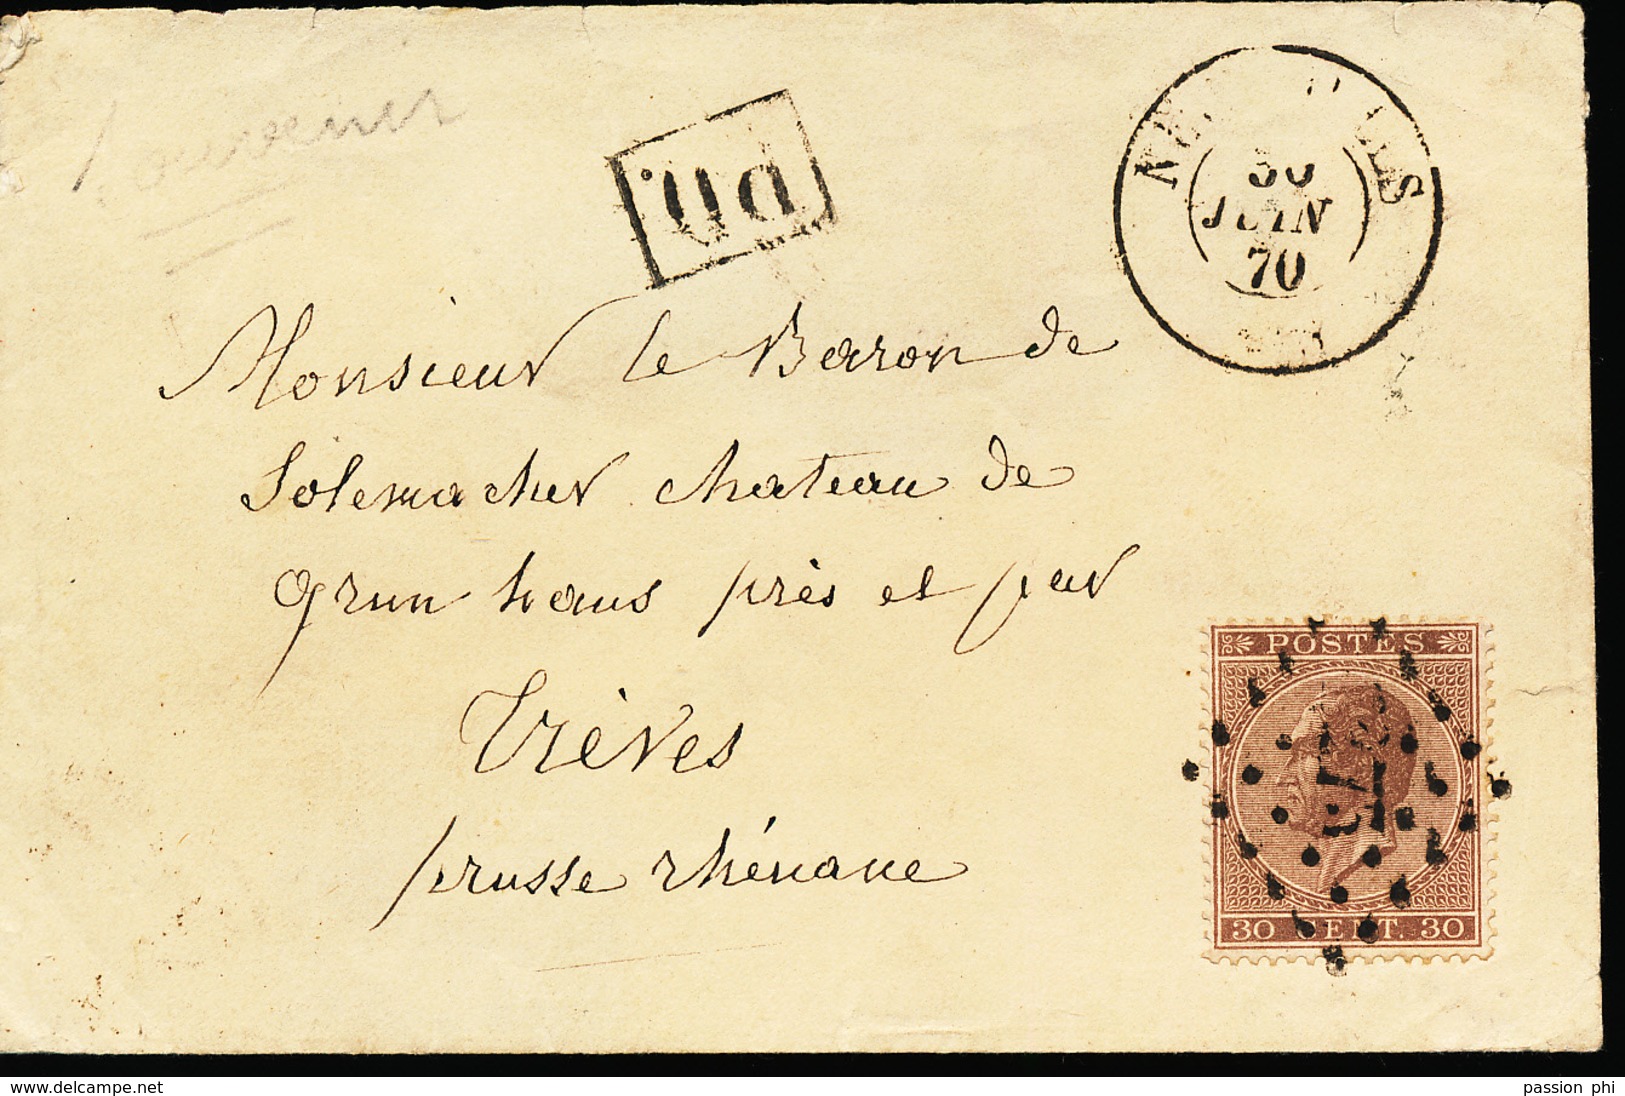 P.D.
30
JUIN
70
Monsieur le Baron de
Solemacher chateau de
Grun haus près et par
Trèves
prusse rhénane
POSTES
30 CENT. 30
www.delcampe.net
passion phi